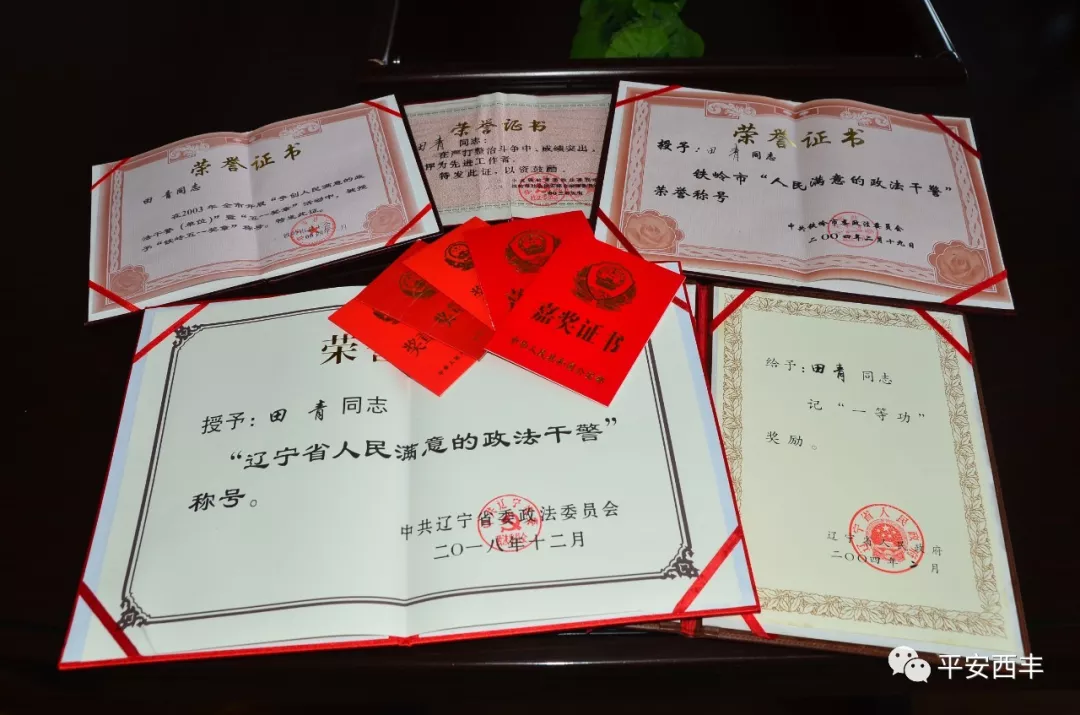 荣誉证书
田青同志
在2003年全市开展“争创人民满意的政
法干警(单位)”暨“五一奖章”活动中，被授
予“铁岭五一奖章”称号。特发此证。
荣誉证书
田青同志：
在严打整治斗争中，成绩突出，
评为先进工作者。
特发此证，以资鼓励。
荣誉证书
授予：田青同志
铁岭市“人民满意的政法干警”
荣誉称号
中共铁岭市委政法委员会
二00四年二月十九日
嘉奖证书
荣
授予：田青同志
“辽宁省人民满意的政法干警”
称号。
中共辽宁省委政法委员会
二〇一八年十二月
给予：田青同志
记“一等功”
奖励。
辽宁省人民政府
二00四年二月
平安西丰